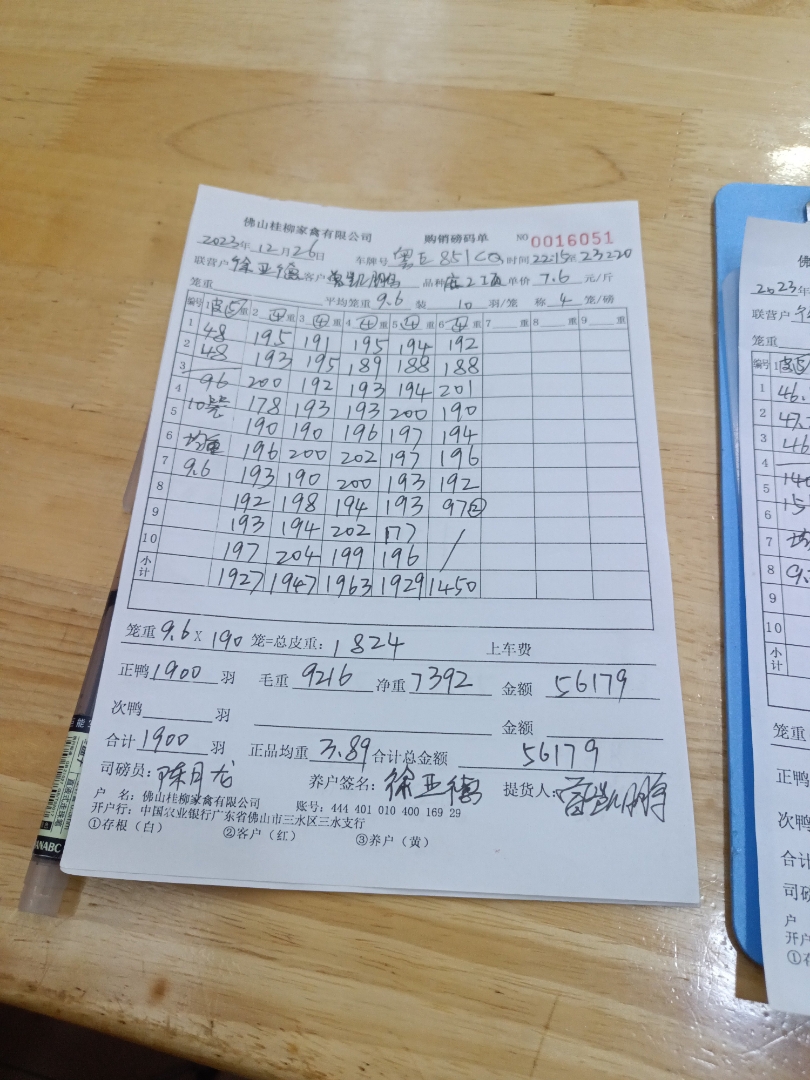 佛山桂柳家禽有限公司 购销磅码单 NO 0016051
2023年12月26日 车牌号 粤E 851CQ 时间 22:15至23:20
联营户 徐亚德 客户 品种 单价 7.6 元/斤
笼重 平均笼重 9.6 装 10 羽/笼 称 4 笼/磅
编号 1 皮⑤重 2 ④重 3 ④重 4 ④重 5 ④重 6 ④重 7 重 8 重 9 重
1 48 195 191 195 194 192
2 48 193 195 189 188 188
3 96 200 192 193 194 201
4 178 193 193 200 190
5 190 190 196 197 194
6 均重 196 200 202 197 196
7 9.6 193 190 200 193 192
8 192 198 194 193 97②
9 193 194 202 177 /
10 197 204 199 196
小计 1927 1947 1963 1929 1450
笼重 9.6 X 190 笼=总皮重: 1824 上车费
正鸭 1900 羽 毛重 9216 净重 7392 金额 56179
次鸭 羽 金额
合计 1900 羽 正品均重 3.89 合计总金额 56179
司磅员: 陈月龙 养户签名: 徐亚德 提货人:
户 名: 佛山桂柳家禽有限公司 账号: 444 401 010 400 169 29
开户行: 中国农业银行广东省佛山市三水区三水支行
①存根(白) ②客户(红) ③养户(黄)
2023年
联营户
笼重
编号 1
1 46.
2 47.
3 46
4
5
6
7
8 9.
9
10
小计
笼重
正鸭
次鸭
合计
司磅
户
开户
①存